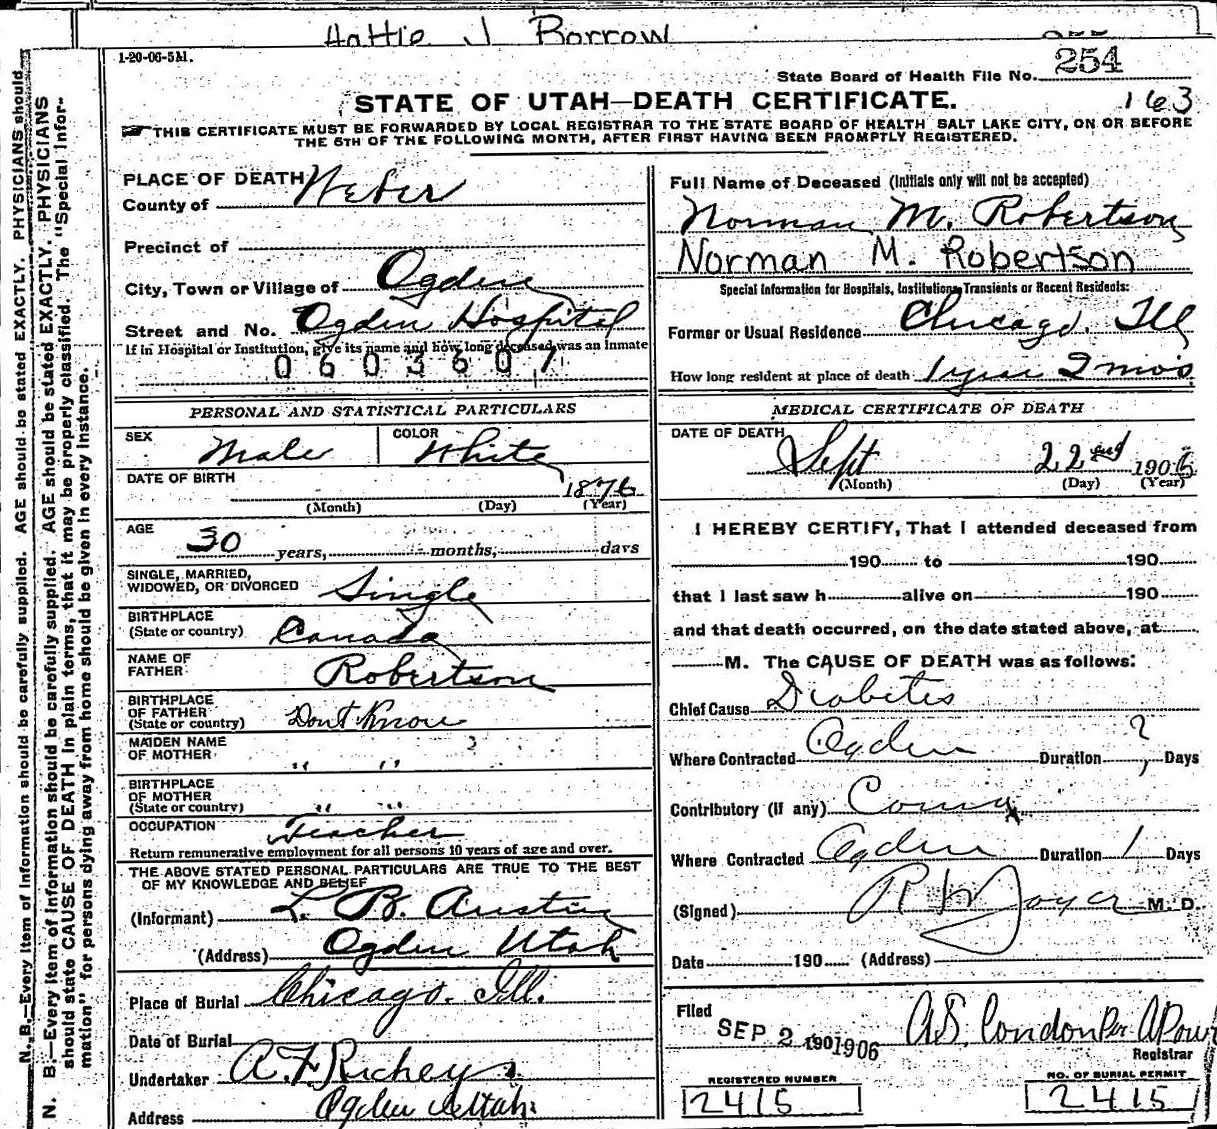 Hattie J Borrow
1-20-06-5M.
State Board of Health File No. 254
163
STATE OF UTAH—DEATH CERTIFICATE.
THIS CERTIFICATE MUST BE FORWARDED BY LOCAL REGISTRAR TO THE STATE BOARD OF HEALTH SALT LAKE CITY, ON OR BEFORE
THE 5TH OF THE FOLLOWING MONTH, AFTER FIRST HAVING BEEN PROMPTLY REGISTERED.
N. B.—Every item of information should be carefully supplied. AGE should be stated EXACTLY. PHYSICIANS should
N. B.—Every item of information should be carefully supplied. AGE should be stated EXACTLY. PHYSICIANS
should state CAUSE OF DEATH in plain terms, that it may be properly classified. The "Special Infor-
mation" for persons dying away from home should be given in every instance.
PLACE OF DEATH
County of Weber
Precinct of
City, Town or Village of Ogden
Street and No. Ogden Hospital
If in Hospital or Institution, give its name and how long deceased was an inmate
0603607
PERSONAL AND STATISTICAL PARTICULARS
SEX Male COLOR White
DATE OF BIRTH 1876
(Month) (Day) (Year)
AGE 30 years, months, days
SINGLE, MARRIED,
WIDOWED, OR DIVORCED Single
BIRTHPLACE
(State or country) Canada
NAME OF
FATHER Robertson
BIRTHPLACE
OF FATHER
(State or country) Dont Know
MAIDEN NAME
OF MOTHER " " ?
BIRTHPLACE
OF MOTHER
(State or country) " "
OCCUPATION Teacher
Return remunerative employment for all persons 10 years of age and over.
THE ABOVE STATED PERSONAL PARTICULARS ARE TRUE TO THE BEST
OF MY KNOWLEDGE AND BELIEF
(Informant) L. B. Austin
(Address) Ogden Utah
Place of Burial Chicago. Ill.
Date of Burial
Undertaker A. F. Richey
Address Ogden Utah
Full Name of Deceased (Initials only will not be accepted)
Norman M. Robertson
Norman M. Robertson
Special Information for Hospitals, Institutions, Transients or Recent Residents:
Former or Usual Residence Chicago. Ill
How long resident at place of death 1 year 2 mos
MEDICAL CERTIFICATE OF DEATH
DATE OF DEATH
Sept 22nd 1906
(Month) (Day) (Year)
I HEREBY CERTIFY, That I attended deceased from
190 to 190
that I last saw h alive on 190
and that death occurred, on the date stated above, at
M. The CAUSE OF DEATH was as follows:
Chief Cause Diabetes
Where Contracted Ogden Duration ? Days
Contributory (if any) Coma
Where Contracted Ogden Duration 1 Days
(Signed) R W Joyce M. D.
Date 190 (Address)
Filed
SEP 2 1901906 A S. Condon Per
Registrar
REGISTERED NUMBER
2415
NO. OF BURIAL PERMIT
2415